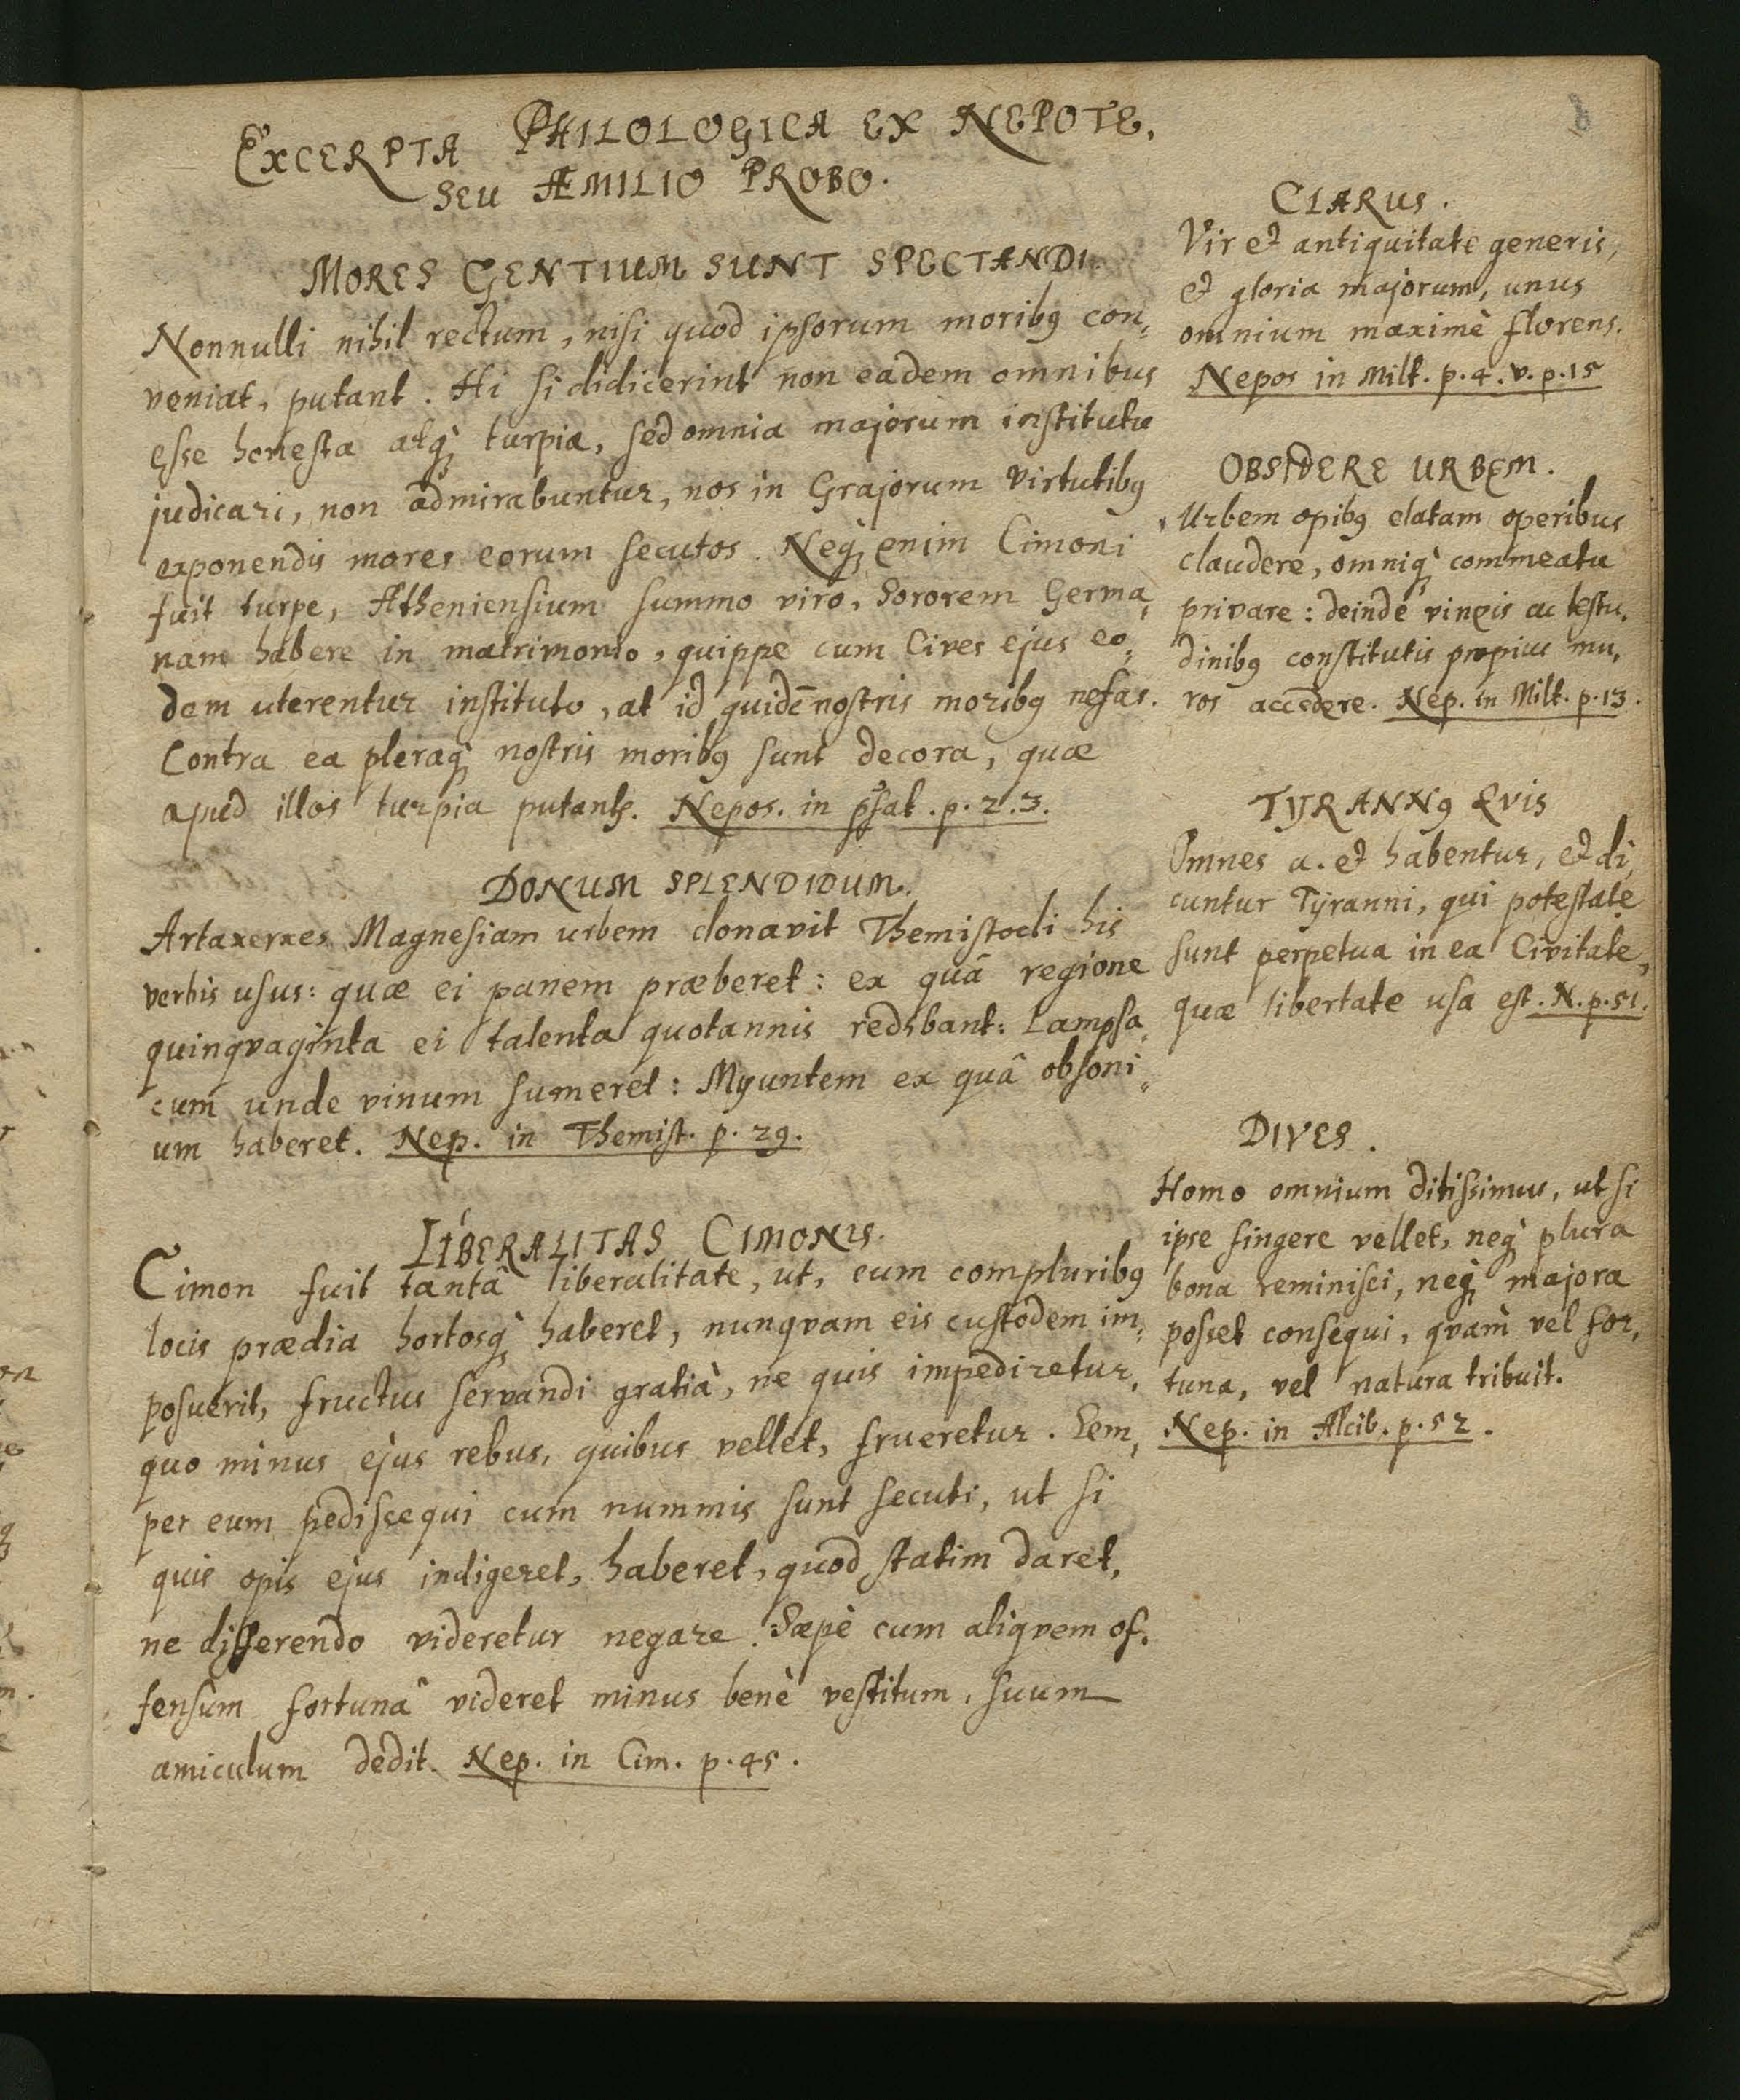 8
EXCERPTA PHILOLOGICA EX NEPOTE,
SEU ÆMILIO PROBO.
MORES GENTIUM SUNT SPECTANDI.
Nonnulli nihil rectum, nisi quod ipsorum moribꝰ con„
veniat, putant. Hi si didicerint non eadem omnibus
esse honesta atq; turpia, sed omnia majorum institutu
judicari, non admirabuntur, nos in Grajorum virtutibꝰ
exponendis mores eorum secutos. Neq; enim Cimoni
fuit turpe, Atheniensium summo viro, Sororem Germa„
nam habere in matrimonio, quippe cum Cives ejus eo„
dem uterentur instituto, at id quidē nostris moribꝰ nefas.
Contra ea pleraq; nostris moribꝰ sunt decora, quæ
apud illos turpia putantʳ. Nepos. in p̃fat. p. 2. 3.
DONUM SPLENDIDUM.
Artaxerxes Magnesiam urbem donavit Themistocli his
verbis usus: quæ ei panem præberet: ex quâ regione
quinqvaginta ei talenta quotannis redibant: Lampsa„
cum unde vinum sumeret: Myuntem ex quâ obsoni„
um haberet. Nep. in Themist. p. 29.
LIBERALITAS CIMONIS.
Cimon fuit tantâ liberalitate, ut, cum compluribꝰ
locis prædia hortosq; haberet, nunqvam eis custodem im„
posuerit, fructus servandi gratiâ, ne quis impediretur,
quo minus ejus rebus, quibus vellet, frueretur. Sem„
per eum pediscequi cum nummis sunt secuti, ut si
quis opis ejus indigeret, haberet, quod statim daret,
ne differendo videretur negare. Sæpè cum aliqvem of„
fensum fortunâ videret minus benè vestitum, suum
amiculum dedit. Nep. in Cim. p. 45.
CLARUS.
Vir et antiquitate generis,
et gloria majorum, unus
omnium maximè florens.
Nepos in Milt. p. 4. v. p. 15
OBSIDERE URBEM.
Urbem opibꝰ elatam operibus
claudere, omniq; commeatu
privare: deinde vineis ac testu„
dinibꝰ constitutis propius mu„
ros accedere. Nep. in Milt. p. 13.
TYRANNꝰ QVIS
Omnes a. et habentur, et di„
cuntur Tÿranni, qui potestate
sunt perpetua in ea Civitate,
quæ libertate usa est. N. p. 51.
DIVES.
Homo omnium ditissimus, ut si
ipse fingere vellet, neq; plura
bona reminisci, neq; majora
posset consequi, qvàm vel for„
tuna, vel natura tribuit.
Nep. in Alcib. p. 52.